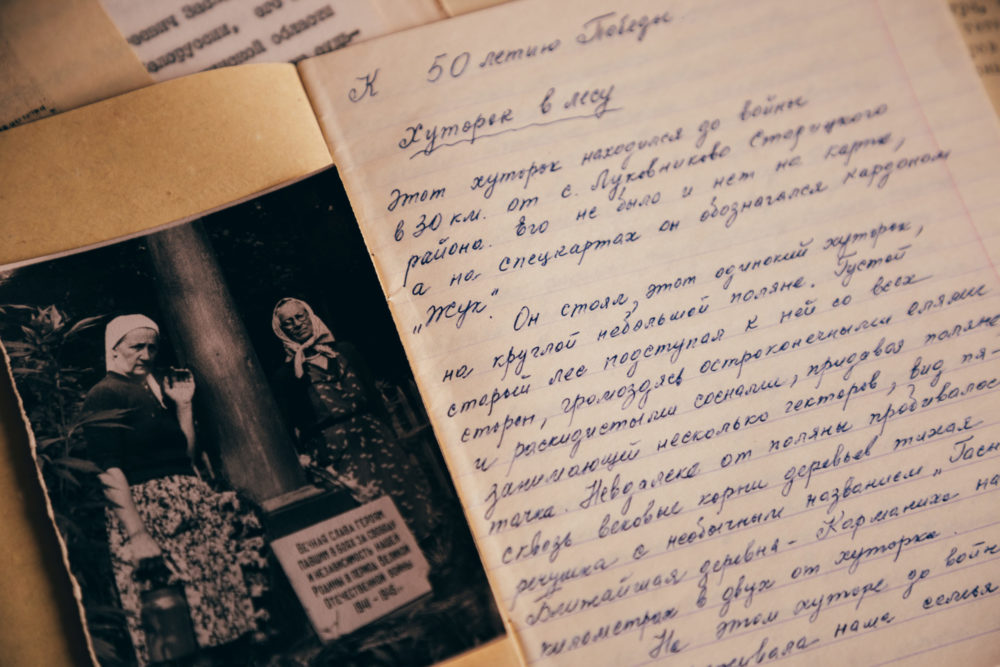 К 50 летию Победы.
Хуторок в лесу
Этот хуторок находился до войны
в 30 км. от с. Луковниково Старицкого
района. Его не было и нет на карте,
а на спецкартах он обозначался кардоном
„Жук“. Он стоял, этот одинокий хуторок,
на круглой небольшой поляне. Густой
старый лес подступал к ней со всех
сторон, громоздясь остроконечными елями
и раскидистыми соснами, придавая поляне
занимающей несколько гектаров, вид пя-
тачка. Невдалеке от поляны пробивалась
сквозь вековые корни деревьев тихая
речушка с необычным названием
Ближайшая деревня - Карманиха на
километрах в двух от хуторка.
На этом хуторе до войн
наша семья
ВЕЧНАЯ СЛАВА ГЕРОЯМ
ПАВШИМ В БОЯХ ЗА СВОБОДУ
И НЕЗАВИСИМОСТЬ НАШЕЙ
РОДИНЫ В ПЕРИОД ВЕЛИКОЙ
ОТЕЧЕСТВЕННОЙ ВОЙНЫ
1941 - 1945г.
области